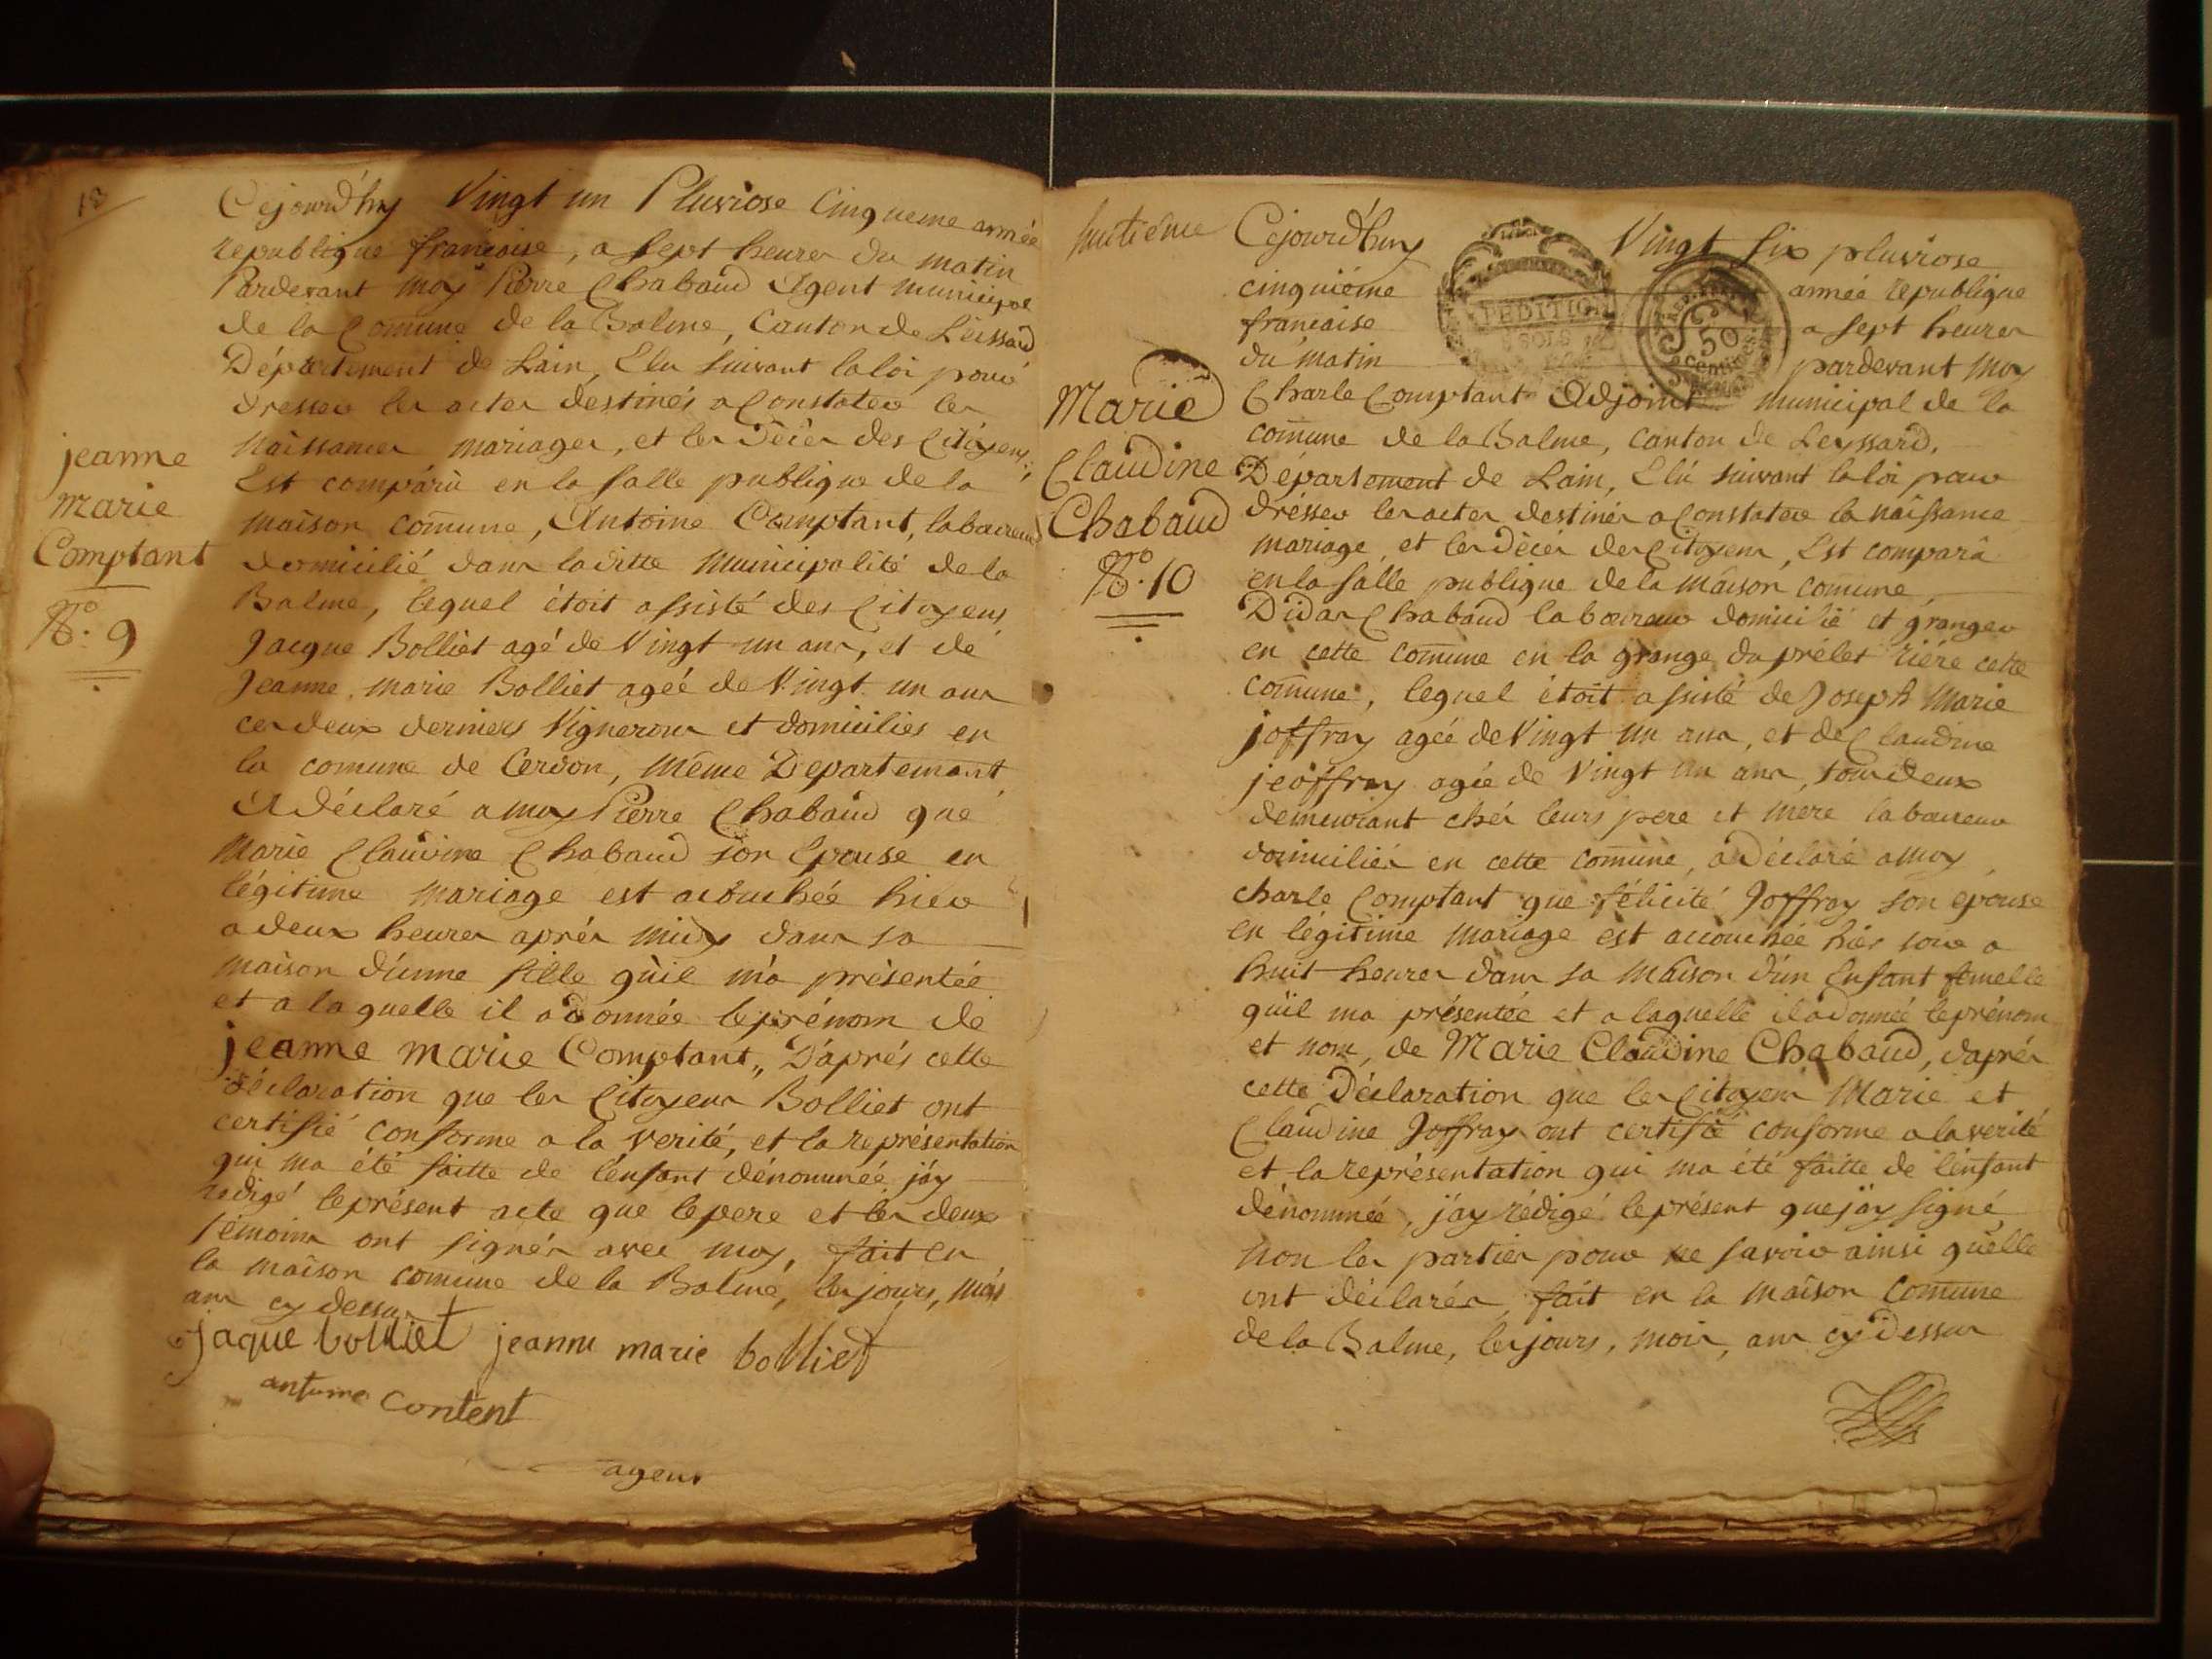 18
Cejourd'huy Vingt un Pluviose Cinquieme année
republique francaise, a sept heures du matin
Pardevant moy Pierre Chabaud Agent municipal
de la Comune de la Balme, Canton de Leissard
Département de Lain, Elu suivant laloi pour
dresser les actes destinés a Constater les
Naissances mariages, et les décès des Citoyens,
Est comparû en la salle publique de la
maison comune, Antoine Comptant, laboureur
domicilié dans laditte Municipalité de la
Balme, lequel étoit assisté des Citoyens
Jacque Bolliet agé de Vingt un ans, et de
Jeanne marie Bolliet ageé de Vingt un ans
ces deux derniers Vignerons et domiciliés en
la comune de Cerdon, même Departemant,
A déclaré a moy Pierre Chabaud que
Marie Claudine Chabaud son Epouse en
légitime mariage est acouchée hier
a deux heures après midy dans sa
maison d'unne fille qu'il m'a présentée
et a laquelle il a donnée le prénom de
jeanne marie Comptant, D'aprés cette
déclaration que les Citoyens Bolliet ont
certifié conforme a la verité, et la représentation
qui ma été faitte de l'enfant dénommée j'ay
redigé le présent acte que le pere et les deux
témoins ont signés avec moy, fait en
la maison comune de la Balme, les jours, mois
ans cy dessus
jaque bolliet jeanne marie bolliet
antoine Content
agent
jeanne
marie
Comptant
No. 9
huitieme
Cejourd'huy Vingt six pluviose
cinquiéme année republique
francaise a sept heures
du matin pardevant moy
EXPEDITION
50
centimes
Charle Comptant Adjoint municipal de la
comune de la Balme, canton de Leyssard,
Département de Lain, Elû suivant laloi pour
drésser les actes destinés a Constater la naissance
mariage, et les décès des Citoyens, Est comparû
en la salle publique de la maison comune
Didas Chabaud laboureur domicilié et granger
en cette comune en la grange du prélet riére cette
comune, lequel étoit assisté de Joseph Marie
joffray agée de Vingt un ans, et de Claudine
jeoffray agée de Vingt un ans, tous deux
demeurant chés leurs pere et mere laboureur
domiciliés en cette comune, a déclaré a moy
charle Comptant que félicité Joffray son epouse
en légitime mariage est accouchée hier soir a
huit heures dans sa maison d'un Enfant femelle
qu'il ma présentée et a laquelle il a donnée le prénom
et nom, de Marie Claudine Chabaud, d'aprés
cette Déclaration que les Citoyens Marie et
Claudine Joffray ont certifié conforme a la verité
et la représentation qui ma été faitte de l'enfant
dénommée, j'ay rédigé le présent que j'ay signé
non les parties pour ne savoir ainsi qu'elle
ont déclarés, fait en la maison Comune
de la Balme, les jours, mois, ans cy dessus
Marie
Claudine
Chabaud
No. 10